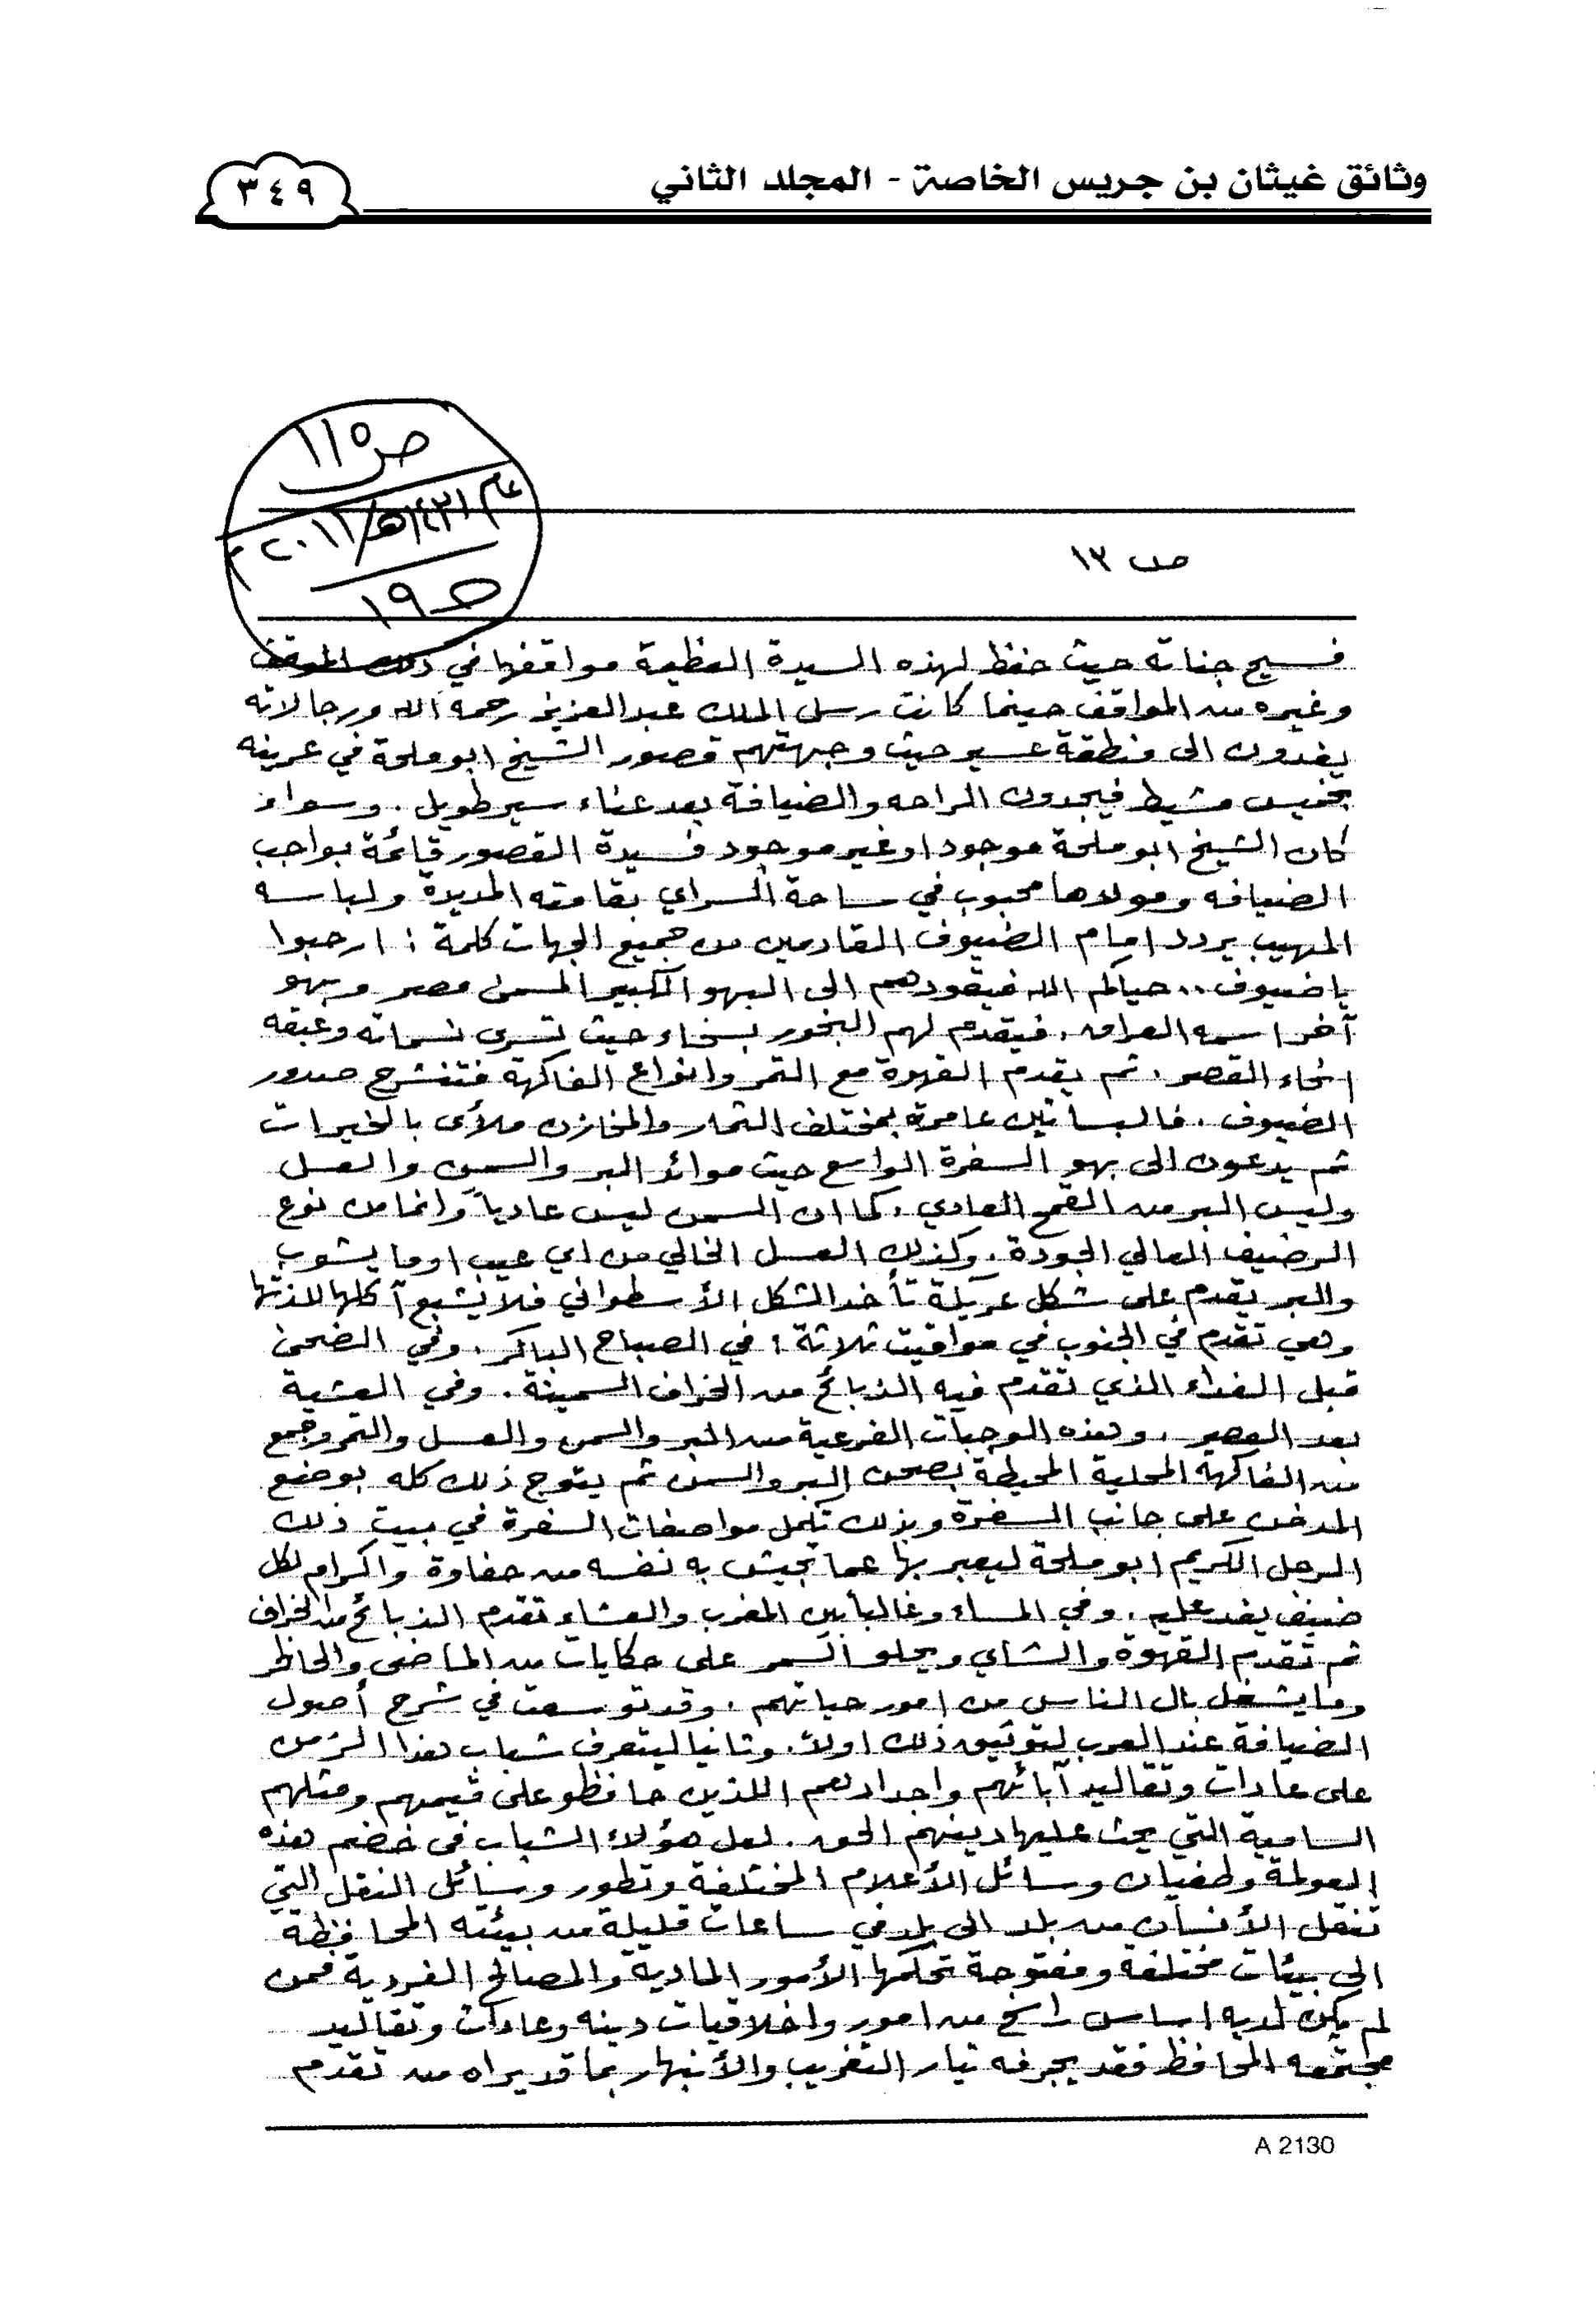 وثائق غيثان بن جريس الخاصة - المجلد الثاني
٣٤٩
ص ١١٥
عام ١٤٣١هـ/٢٠١١م
ص ١٩
ص ١٣
فسيح جناته حيث حفظ لهذه السيدة العظيمة مواقفها في ذلك الموقف
وغيره من المواقف حينما كانت رسل الملك عبدالعزيز رحمه الله ورجالاته
يفدون الى منطقة عسير حيث وجهتهم قصور الشيخ ابو ملحة في عرينه
بخميس مشيط فيجدون الراحه والضيافة بعد عناء سير طويل . وسواء
كان الشيخ ابو ملحة موجود او غير موجود فسيدة القصور قائمة بواجب
الضيافه ومولاها محبوب في ساحة السراي بقامته المديدة ولباسه
المهيب يردد امام الضيوف القادمين من جميع الجهات كلمة : ارحبوا
يا ضيوف .. حياكم الله فيقودهم الى البهو الكبير المسمى مصر وبهو
آخر اسمه العراق . فيقدم لهم البخور بسخاء حيث تسري نسماته وعبقه
انحاء القصر . ثم يقدم القهوة مع التمر وانواع الفاكهة فتنشرح صدور
الضيوف . فالبساتين عامرة بمختلف الثمار والمخازن ملأى بالخيرات
ثم يدعون الى بهو السفرة الواسع حيث موائد البر والسمن والعسل
وليس البر من القمح العادي . كما ان السمن ليس عادياً وانما من نوع
الرضيف العالي الجودة . وكذلك العسل الخالي من اي عيب او ما يشوب
والبر تقدم على شكل عريكة تأخذ الشكل الأسطواني فلا يشبع آكلها للذتها
وهي تقدم في الجنوب في مواقيت ثلاثة : في الصباح الباكر . وفي الضحى
قبل الغداء الذي تقدم فيه الذبائح من الخراف السمينة . وفي العشية
بعد العصر . وهذه الوجبات الفرعية من البر والسمن والعسل والتمر وجمع
من الفاكهة المحلية المحيطة بصحن البر والسمن ثم يتوج ذلك كله بوضع
المدخن على جانب السفرة وبذلك تكمل مواصفات السفرة في بيت ذلك
الرجل الكريم ابو ملحة ليعبر بها عما تجيش به نفسه من حفاوة واكرام لكل
ضيف يفد عليه . وفي المساء وغالباً بين المغرب والعشاء تقدم الذبائح من الخراف
ثم تقدم القهوة والشاي ويحلو السمر على حكايات من الماضي والحاظر
وما يشغل بال الناس من امور حياتهم . وقد توسعت في شرح أصول
الضيافة عند العرب لتوثيق ذلك اولاً. وثانيا ليتعرف شباب هذا الزمن
على عادات وتقاليد آبائهم واجدادهم اللذين حافظو على قيمهم ومثلهم
السامية التي يحث عليها دينهم الحق . لعل هؤلاء الشباب في خضم هذه
العولمة وطغيان وسائل الأعلام المختلفة وتطور وسائل النقل التي
تنقل الأنسان من بلد الى بلد في ساعات قليلة من بيئته المحافظة
الى بيئات مختلفة ومفتوحة تحكمها الأمور المادية والمصالح الفردية فمن
لم يكن لديه اساس راسخ من امور واخلاقيات دينه وعادات وتقاليد
مجتمعه المحافظ فقد يجرفه تيار التغريب والأنبهار بما قد يراه من تقدم
A 2130